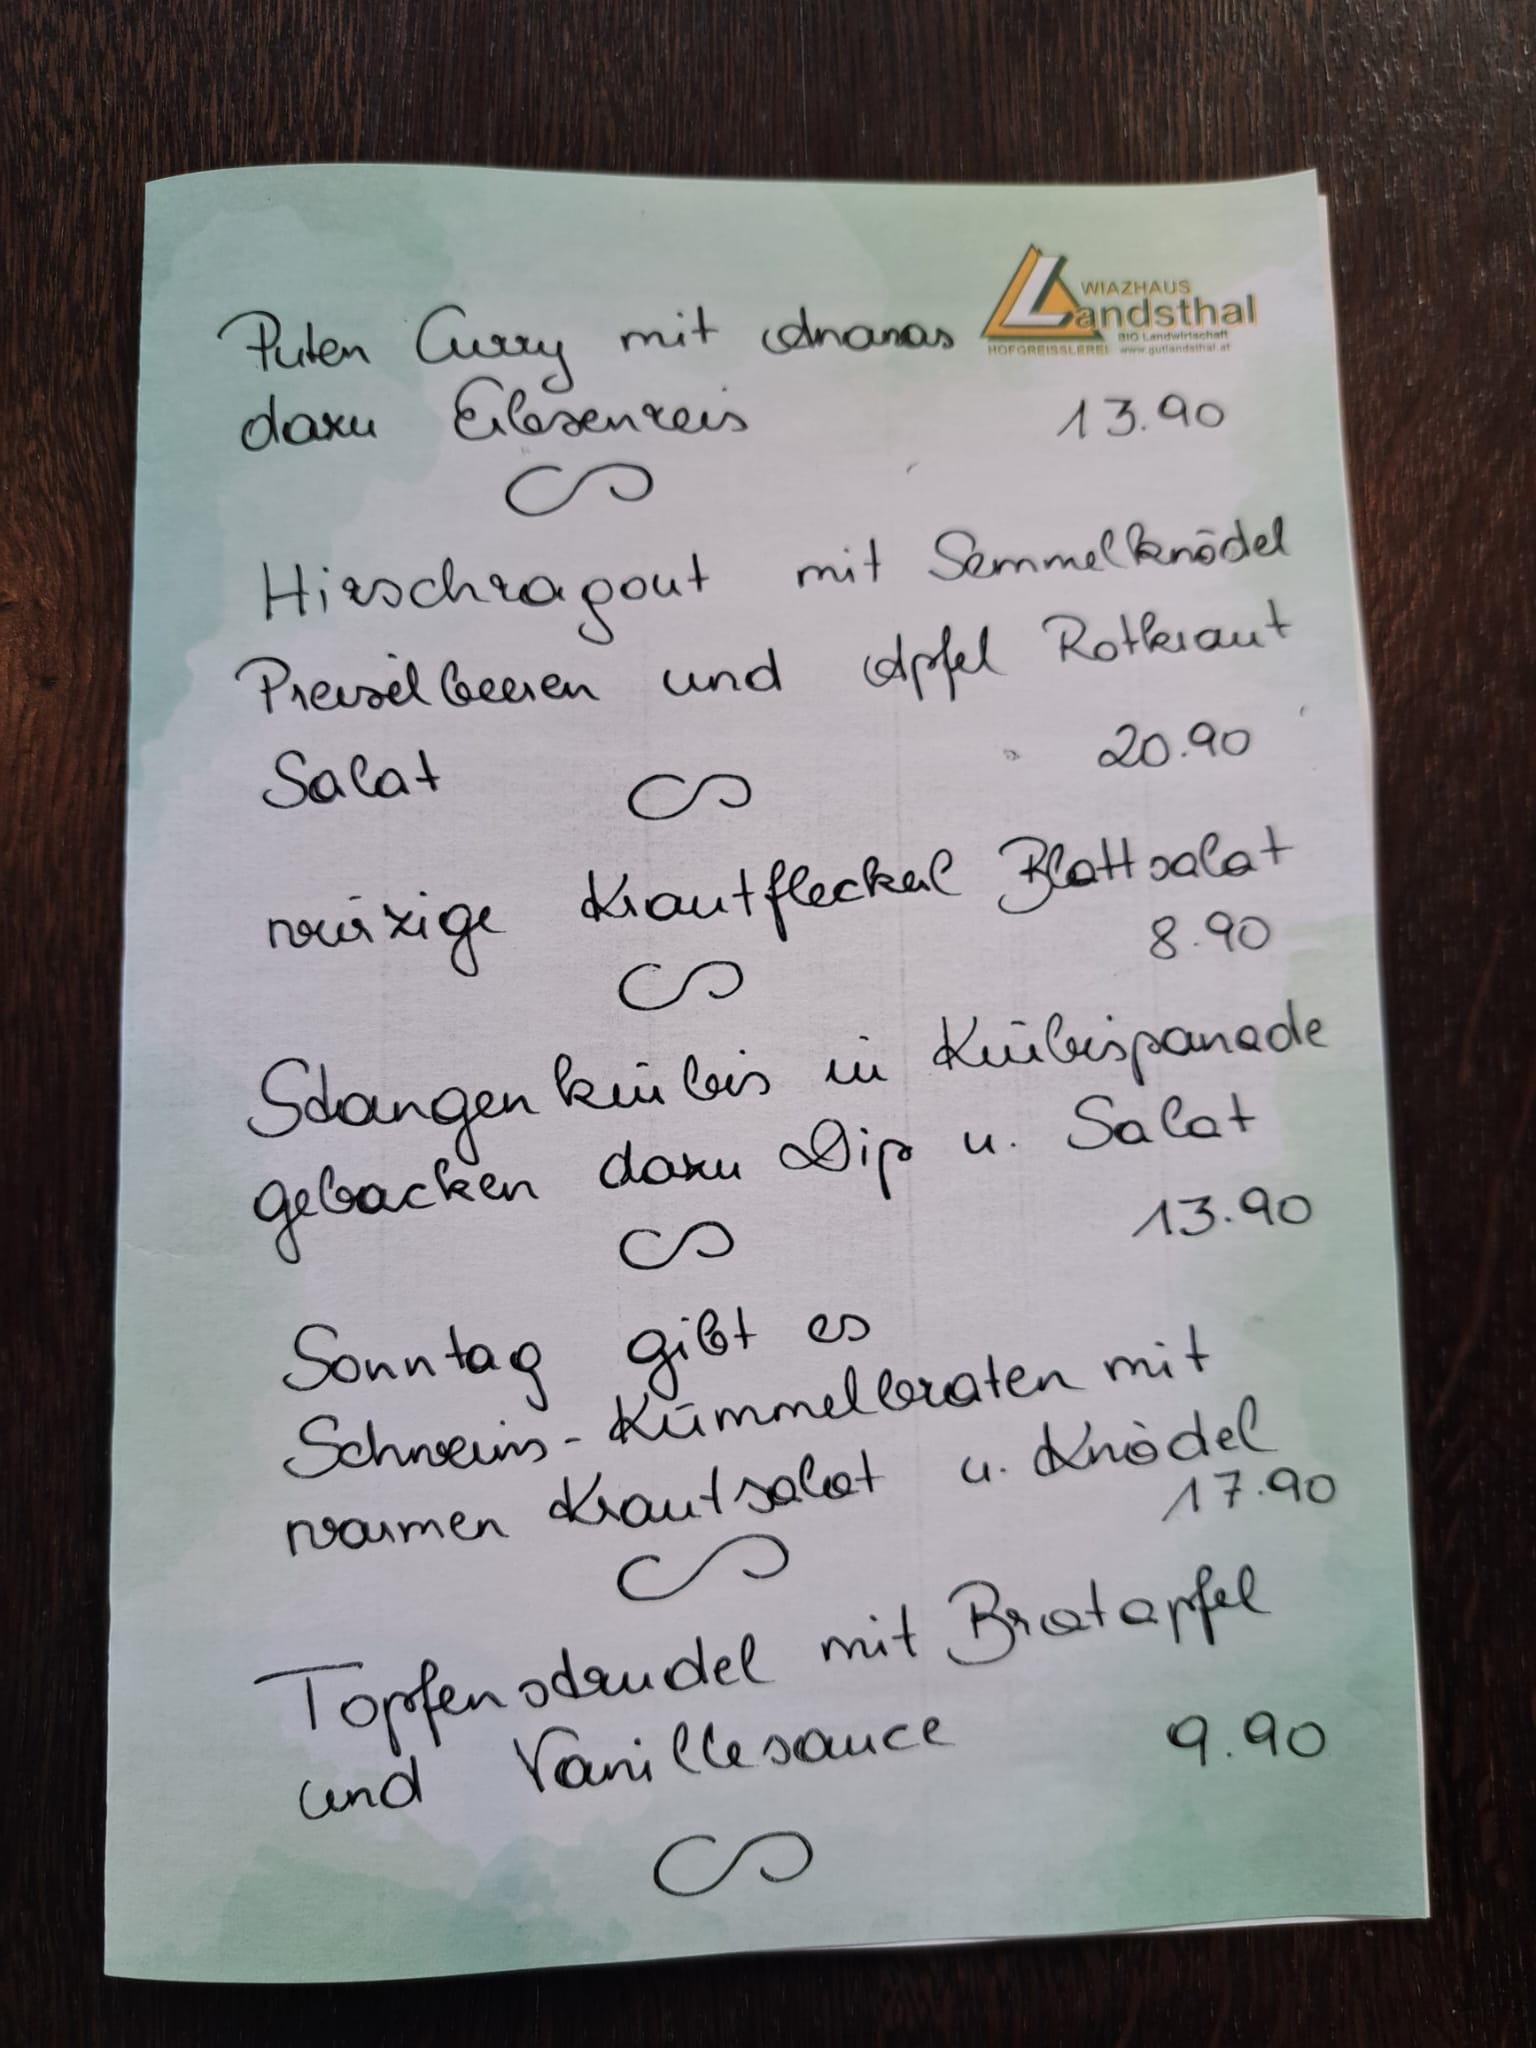 WIAZHAUS
Landsthal
BIO Landwirtschaft
HOFGREISSLEREI www.gutlandsthal.at
Puten Curry mit Ananas
dazu Erbsenreis 13.90
Hirschragout mit Semmelknödel
Preiselbeeren und Apfel Rotkraut
Salat 20.90
würzige Krautfleckerl Blattsalat
8.90
Stangenkürbis in Kürbispanade
gebacken dazu Dip u. Salat
13.90
Sonntag gibt es
Schweins-Kümmelbraten mit
warmen Krautsalat u. Knödel
17.90
Topfenstrudel mit Bratapfel
und Vanillesauce 9.90